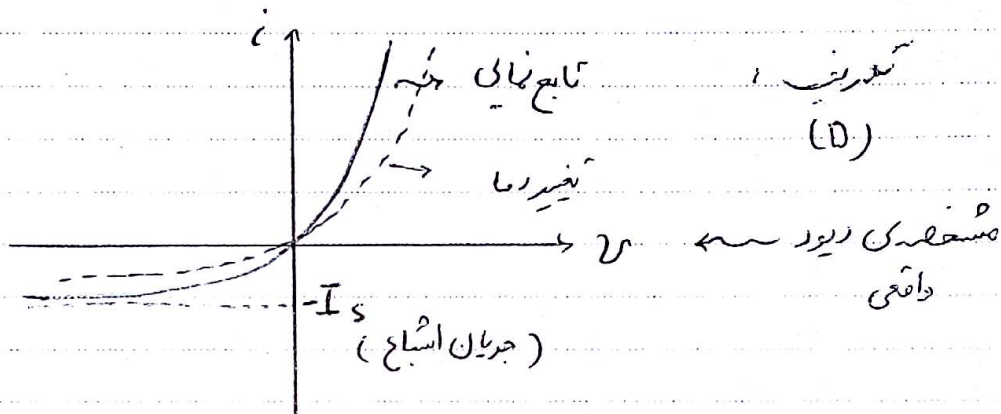 i
تابع نمایی
(D)
تغییر دما
مشخصه‌ی دیود
واقعی
v
-Is
(جریان اشباع)